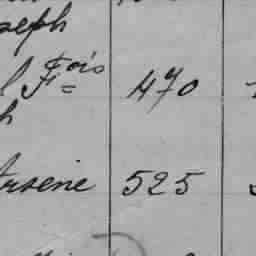 seph
l Fois 470
h
rsene 525